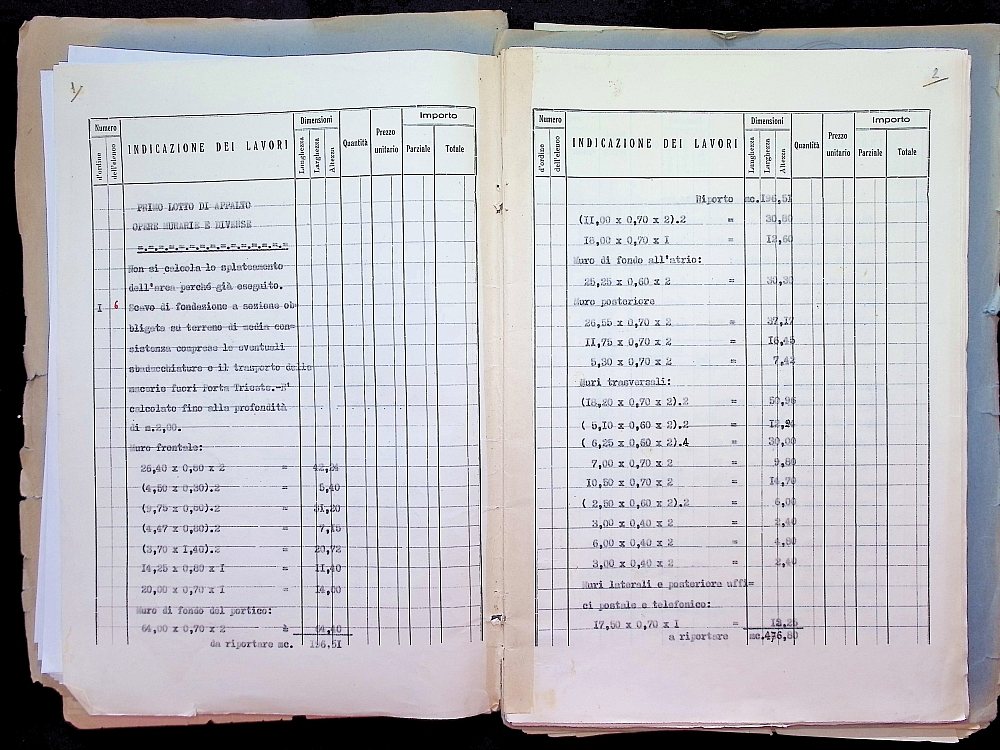 1
Numero
d'ordine
dell'elenco
INDICAZIONE DEI LAVORI
Dimensioni
Lunghezza
Larghezza
Altezza
Quantità
Prezzo unitario
Importo
Parziale
Totale
PRIMO LOTTO DI APPALTO
OPERE MURARIE E DIVERSE
=.=.=.=.=.=.=.=.=.=.=.=.=.=.=
Non si calcola lo splateamento
dell'area perché già eseguito.
I 6 Scavo di fondazione a sezione ob=
bligata su terreno di media con=
sistenza compreso le eventuali
sbadacchiature e il trasporto delle
macerie fuori Porta Trieste.-E'
calcolato fino alla profondità
di m.2,00.
Muro frontale:
26,40 x 0,80 x 2 = 42,24
(4,50 x 0,30).2 = 5,40
(9,75 x 0,80).2 = 31,20
(4,47 x 0,80).2 = 7,15
(3,70 x 1,40).2 = 20,72
14,25 x 0,80 x I = 11,40
20,00 x 0,70 x I = 14,00
Muro di fondo del portico:
64,00 x 0,70 x 2 = 64,40
da riportare mc. 196,51
2
Numero
d'ordine
dell'elenco
INDICAZIONE DEI LAVORI
Dimensioni
Lunghezza
Larghezza
Altezza
Quantità
Prezzo unitario
Importo
Parziale
Totale
Riporto mc.196,51
(II,00 x 0,70 x 2).2 = 30,80
18,00 x 0,70 x I = 12,60
Muro di fondo all'atrio:
25,25 x 0,60 x 2 = 30,30
Muro posteriore
26,55 x 0,70 x 2 = 37,17
II,75 x 0,70 x 2 = 16,45
5,30 x 0,70 x 2 = 7,42
Muri trasversali:
(18,20 x 0,70 x 2).2 = 50,96
( 5,10 x 0,60 x 2).2 = 12,24
( 6,25 x 0,60 x 2).4 = 30,00
7,00 x 0,70 x 2 = 9,80
10,50 x 0,70 x 2 = 14,70
( 2,50 x 0,60 x 2).2 = 6,00
3,00 x 0,40 x 2 = 2,40
6,00 x 0,40 x 2 = 4,80
3,00 x 0,40 x 2 = 2,40
Muri laterali e posteriore uffi=
ci postale e telefonico:
17,50 x 0,70 x I = 12,25
a riportare mc.476,80